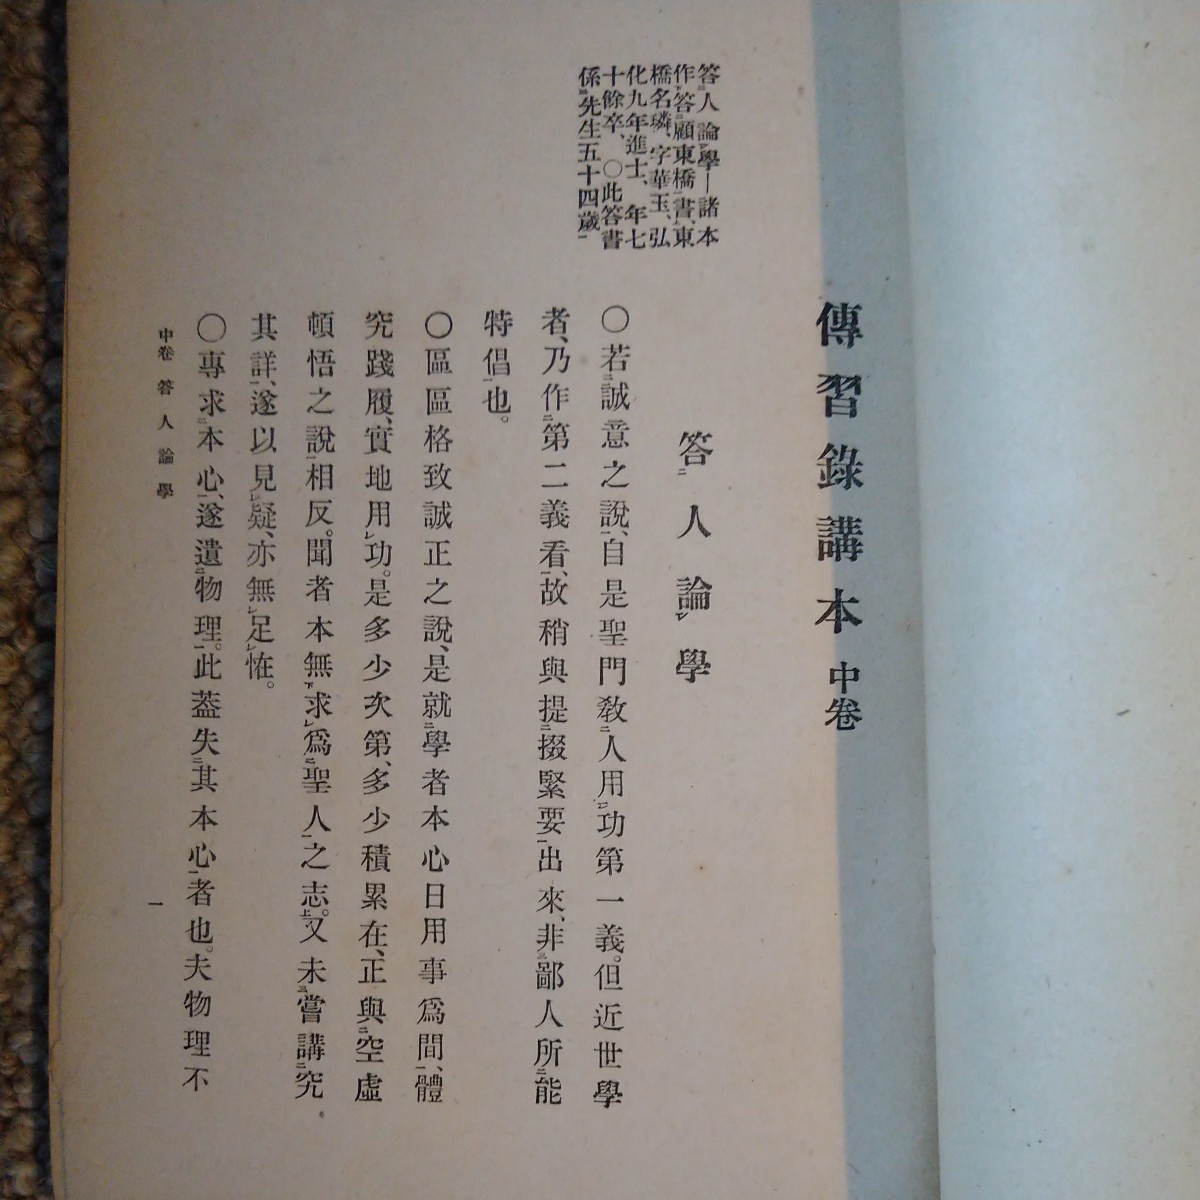 傳習錄講本 中卷
答人論學—諸本
作答顧東橋書、東
橋名璘、字華玉、弘
化九年進士、年七
十餘卒、〇此答書
係先生五十四歲
答人論學
〇若誠意之說、自是聖門敎人用功第一義。但近世學
者、乃作第二義看、故稍與提掇緊要出來、非鄙人所能
特倡也。
〇區區格致誠正之說、是就學者本心日用事爲間、體
究踐履、實地用功。是多少次第、多少積累在、正與空虛
頓悟之說相反。聞者本無求爲聖人之志。又未嘗講究
其詳、遂以見疑、亦無足恠。
〇專求本心、遂遺物理。此蓋失其本心者也。夫物理不
中卷 答人論學
一